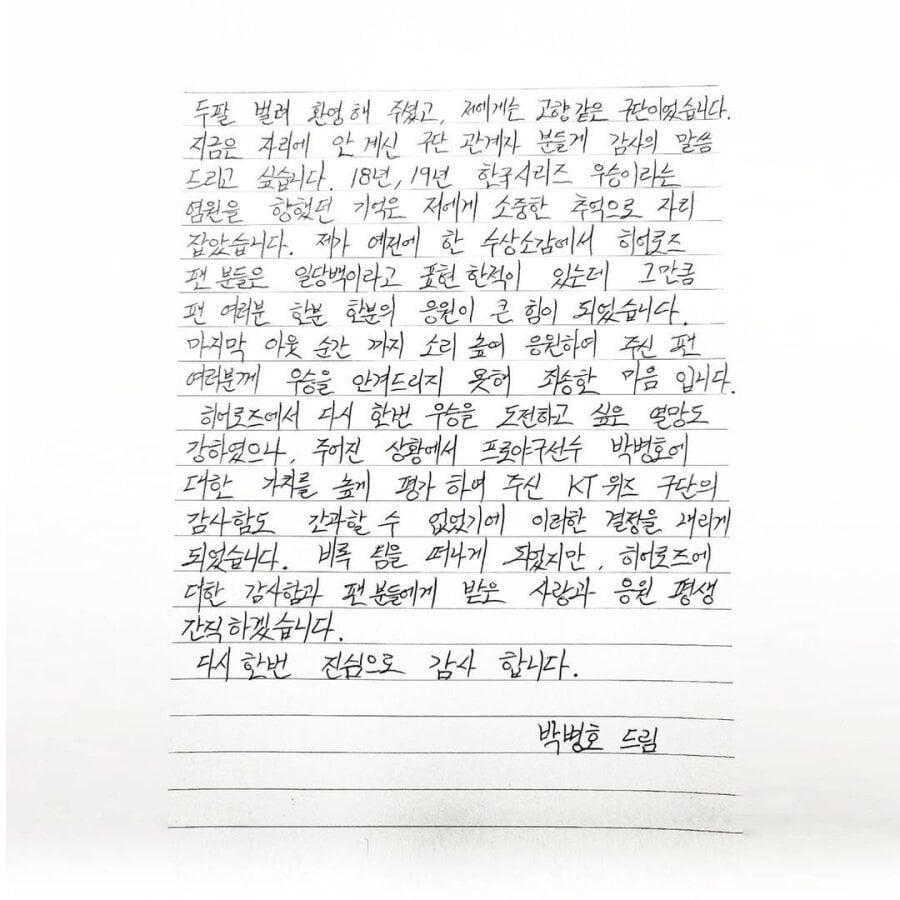 두팔 벌려 환영해 주셨고, 저에게는 고향같은 구단이었습니다.
지금은 자리에 안 계신 구단 관계자 분들게 감사의 말씀
드리고 싶습니다. 18년, 19년 한국시리즈 우승이라는
염원을 향했던 기억은 저에게 소중한 추억으로 자리
잡았습니다. 제가 예전에 한 수상소감에서 히어로즈
팬 분들은 일당백이라고 표현 한적이 있는데 그만큼
팬 여러분 한분 한분의 응원이 큰 힘이 되었습니다.
마지막 아웃 순간 까지 소리 높여 응원하여 주신 팬
여러분께 우승을 안겨드리지 못해 죄송한 마음 입니다.
히어로즈에서 다시 한번 우승을 도전하고 싶은 열망도
강하였으나, 주어진 상황에서 프로야구선수 박병호에
대한 가치를 높게 평가 하여 주신 KT 위즈 구단의
감사함도 간과할 수 없었기에 이러한 결정을 내리게
되었습니다. 비록 팀을 떠나게 되었지만, 히어로즈에
대한 감사함과 팬분들에게 받은 사랑과 응원 평생
간직하겠습니다.
다시한번 진심으로 감사 합니다.
박병호 드림